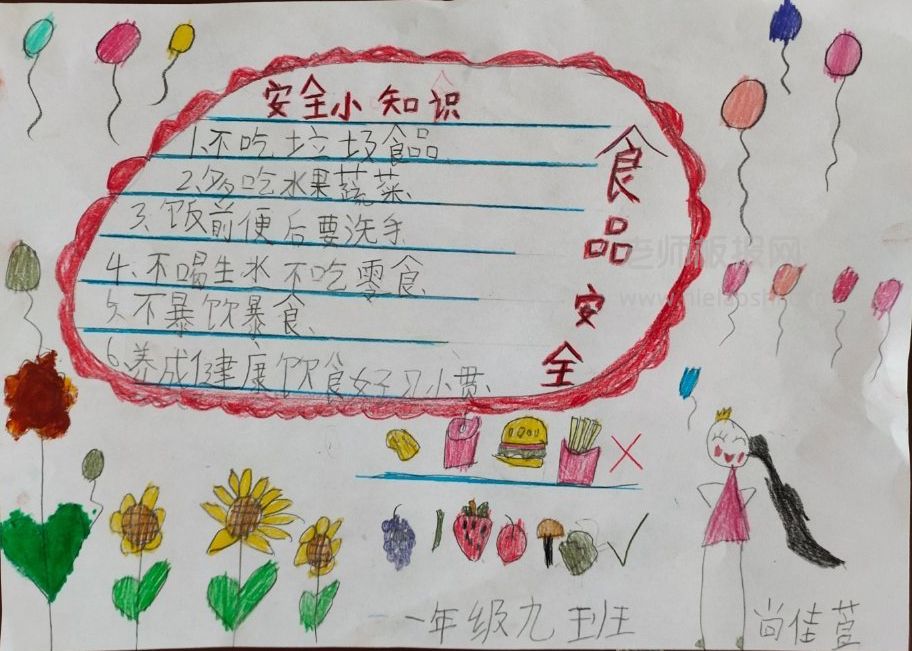 安全小知识
1.不吃垃圾食品、
2、多吃水果蔬菜、
3、饭前便后要洗手
4、不喝生水 不吃零食、
5、不暴饮暴食、
6、养成健康饮食好习小惯、
食品安全
一年级九班
尚佳萱
老师板报网